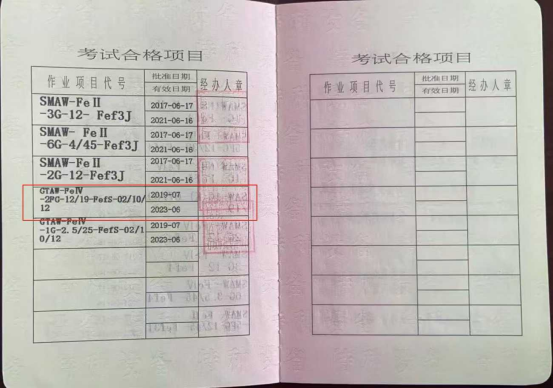 考试合格项目
作业项目代号 批准日期 有效日期 经办人章
SMAW-FeⅡ
-3G-12- Fef3J
2017-06-17
2021-06-16
SMAW- FeⅡ
-6G-4/45-Fef3J
2017-06-17
2021-06-16
SMAW-FeⅡ
-2G-12-Fef3J
2017-06-17
2021-06-16
GTAW-FeⅣ
-2FG-12/19-FefS-02/10/
12
2019-07
2023-06
GTAW-FeⅣ
-1G-2.5/25-FefS-02/1
0/12
2019-07
2023-06
考试合格项目
作业项目代号 批准日期 有效日期 经办人章